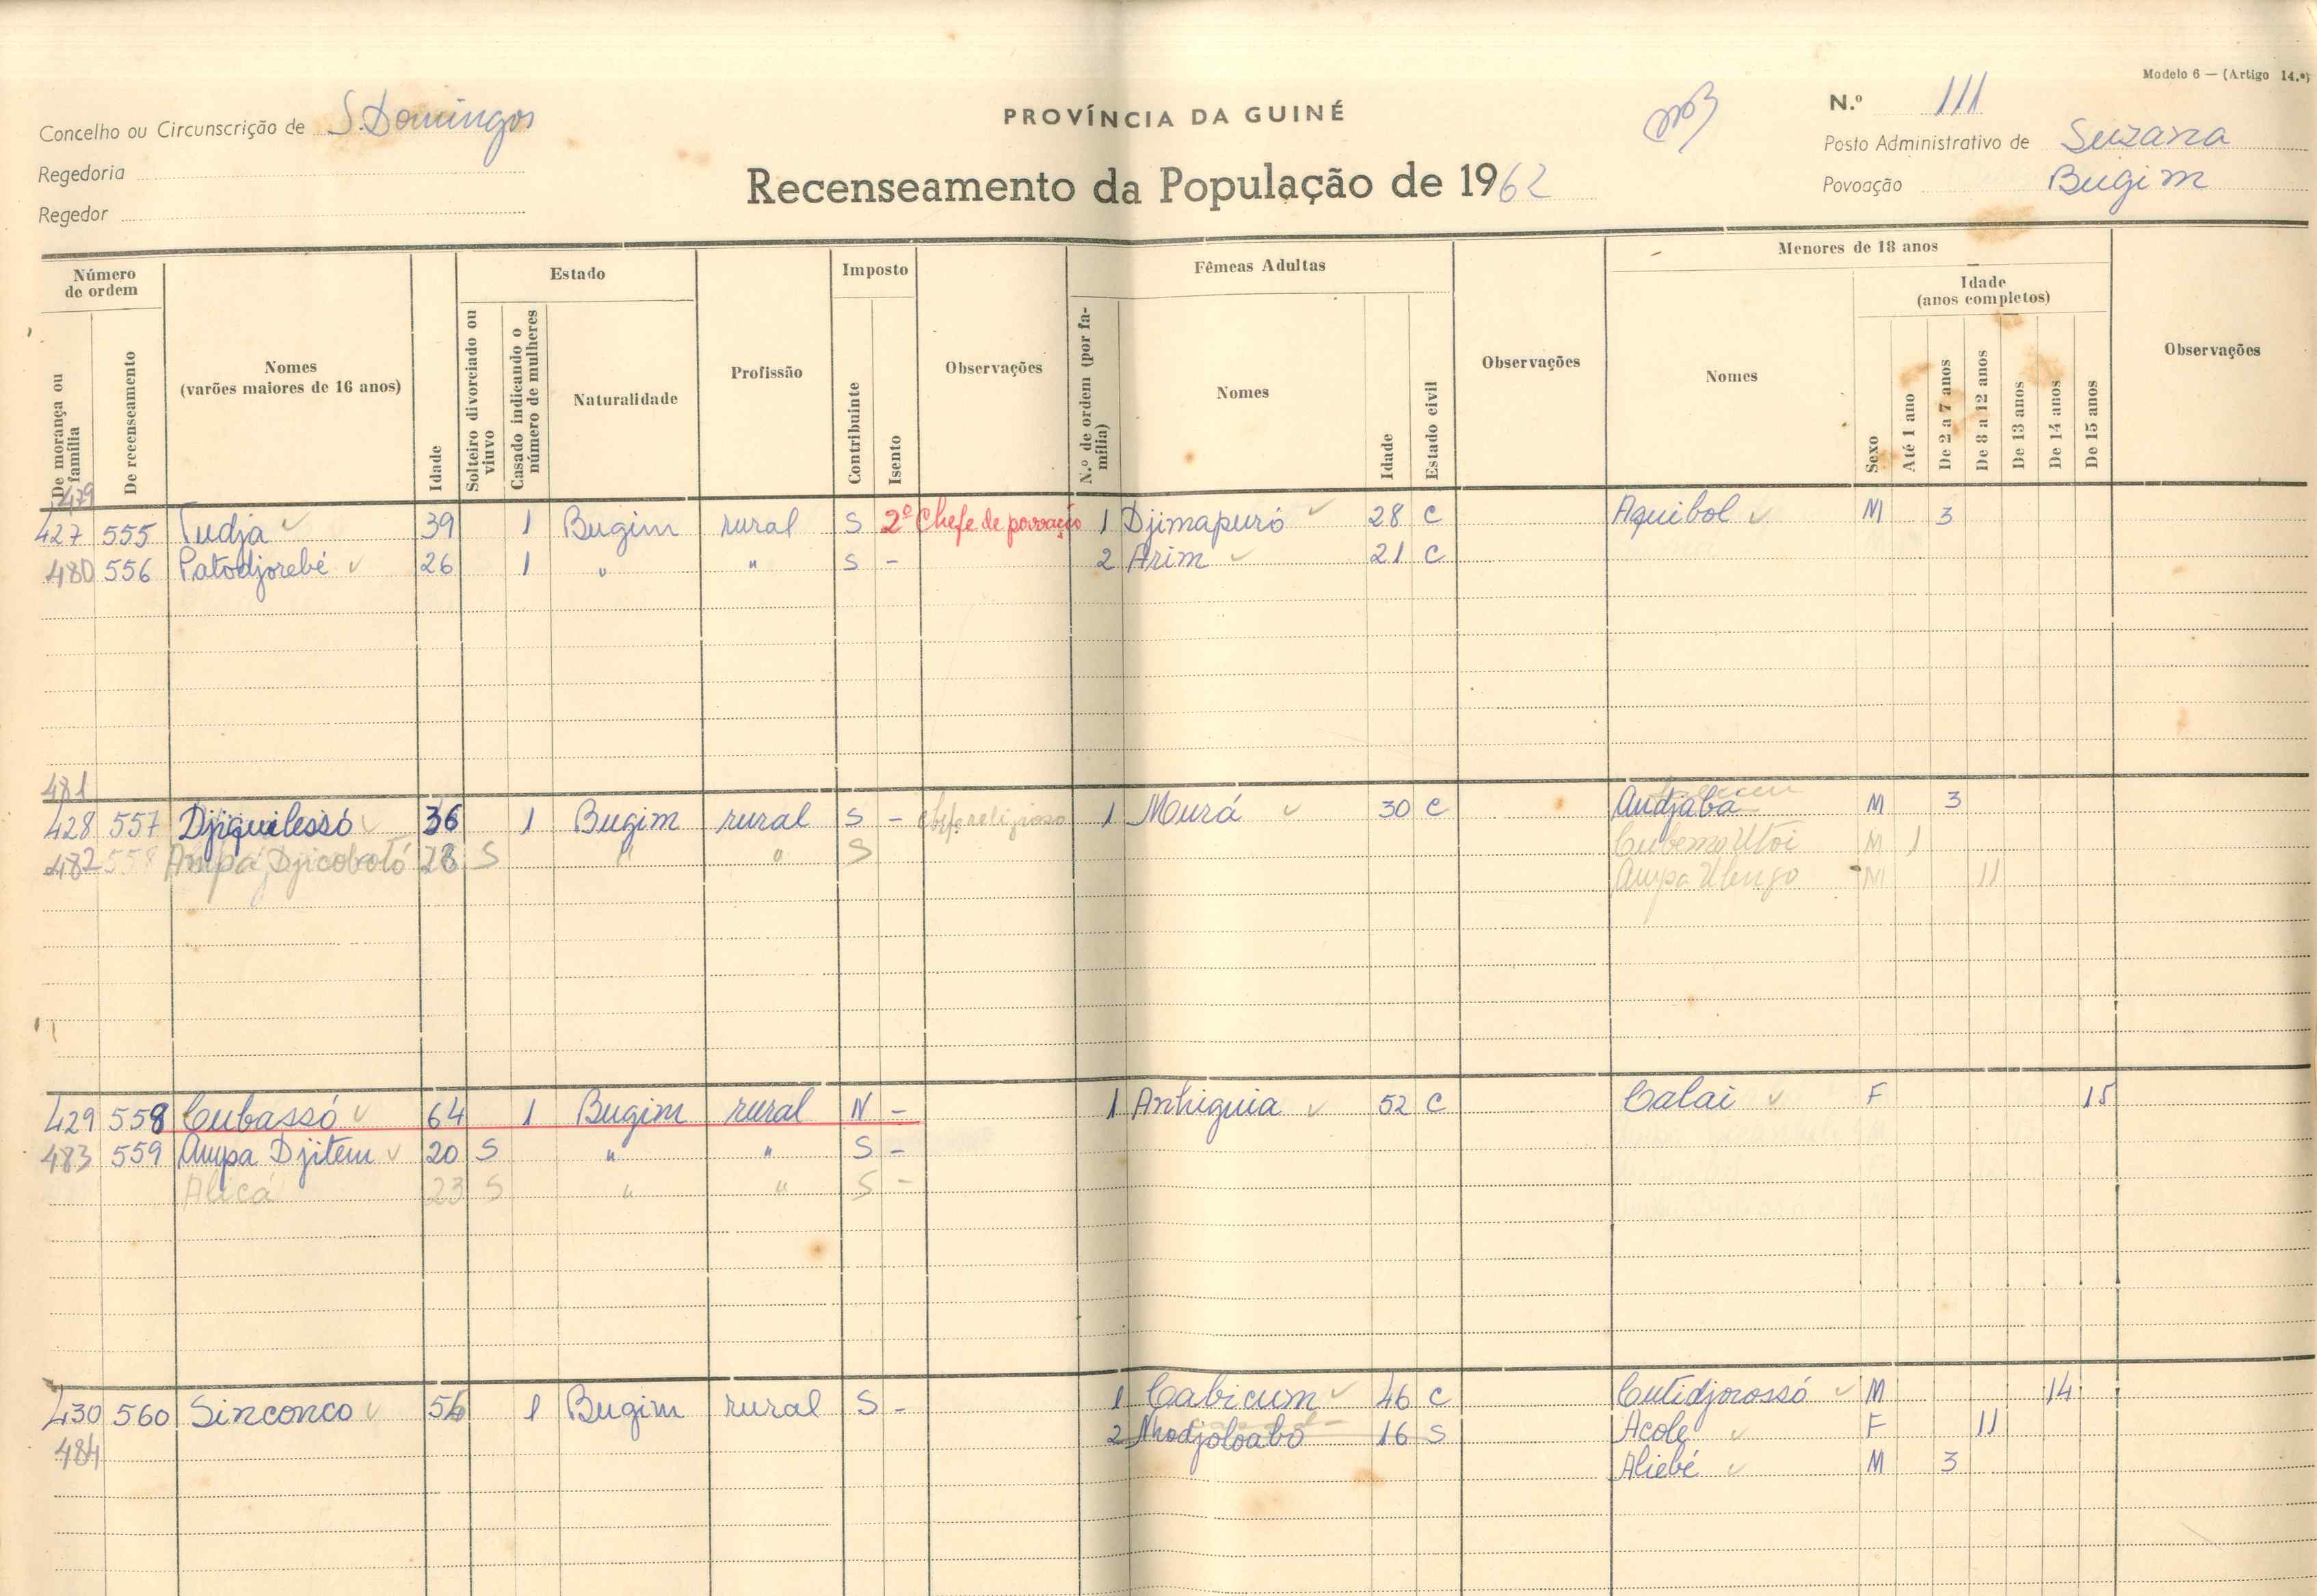 Modelo 6 — (Artigo 14.º)
Concelho ou Circunscrição de S. Domingos
PROVÍNCIA DA GUINÉ
N.º 111
Regedoria
Posto Administrativo de Suzana
Regedor
Recenseamento da População de 1962
Povoação Bugim
Número de ordem
Estado
Imposto
Fêmeas Adultas
Menores de 18 anos
Idade (anos completos)
De morança ou família
De recenseamento
Nomes (varões maiores de 16 anos)
Idade
Solteiro divorciado ou viuvo
Casado indicando o número de mulheres
Naturalidade
Profissão
Contribuinte
Isento
Observações
N.º de ordem (por família)
Nomes
Idade
Estado civil
Observações
Nomes
Sexo
Até 1 ano
De 2 a 7 anos
De 8 a 12 anos
De 13 anos
De 14 anos
De 15 anos
Observações
479
427 555 Tudja 39 1 Bugim rural S 2º Chefe de povoação 1 Djimapuró 28 C Aquibol M 3
480 556 Patodjorebé 26 1 " " S - 2 Arim 21 C
481
428 557 Djiquilessó 36 1 Bugim rural S - chefe religioso 1 Mourá 30 C Audjaba M 3
482 558 Ampa Djicobotó 28 S " " S M 1
Ampa Ulengo M 11
429 558 Cubassó 64 1 Bugim rural N - 1 Anhiguia 52 C Calai F 15
483 559 Ampa Djitem 20 S " " S -
Alicá 23 S " " S -
430 560 Sinconco 54 1 Bugim rural S - 1 Cabicum 46 C Cutidjorossó M 14
484 2 Nhodjoloabo 16 S Acole F 11
Aliebé M 3